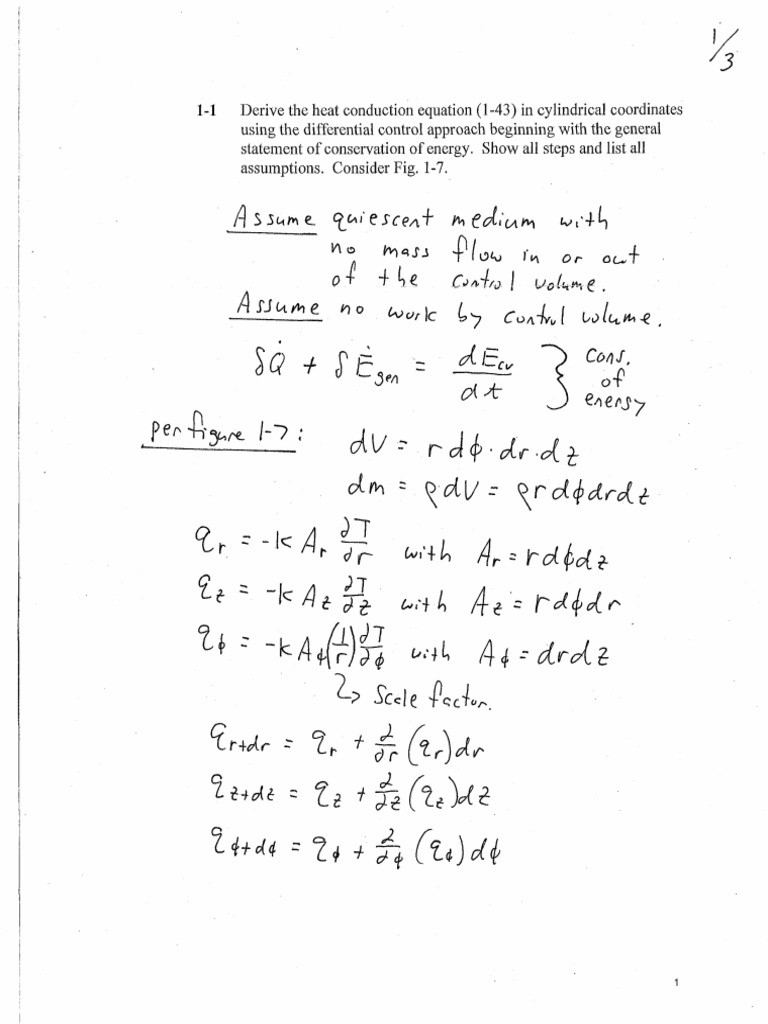 1/3
1-1 Derive the heat conduction equation (1-43) in cylindrical coordinates
using the differential control approach beginning with the general
statement of conservation of energy. Show all steps and list all
assumptions. Consider Fig. 1-7.
Assume quiescent medium with
no mass flow in or out
of the control volume.
Assume no work by control volume.
δQ̇ + δĖgen = dEcv/dt } Cons. of energy
per figure 1-7: dV = r dϕ · dr · dz
dm = ρdV = ρrdϕdrdz
qr = -k Ar ∂T/∂r with Ar = rdϕdz
qz = -k Az ∂T/∂z with Az = rdϕdr
qϕ = -k Aϕ(1/r)∂T/∂ϕ with Aϕ = drdz
↳ Scale factor.
qr+dr = qr + ∂/∂r (qr)dr
qz+dz = qz + ∂/∂z (qz)dz
qϕ+dϕ = qϕ + ∂/∂ϕ (qϕ)dϕ
1